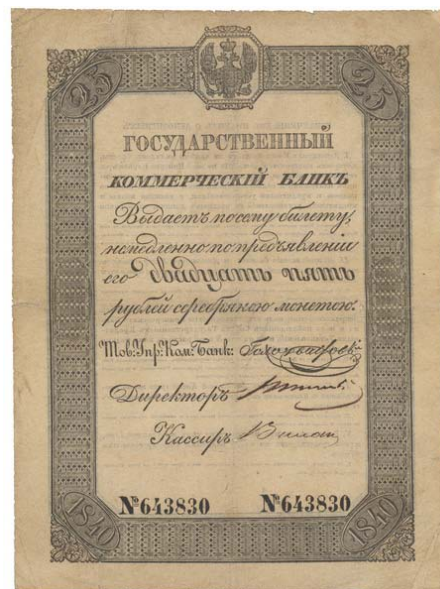 25 25
ГОСУДАРСТВЕННЫЙ
КОММЕРЧЕСКІЙ БАНКЪ
Выдаетъ по сему билету,
немедленно по предъявленіи
его двадцать пять
рублей серебряною монетою.
Тов: Упр: Ком: Банк:
Директоръ
Кассиръ
№643830 №643830
1840 1840